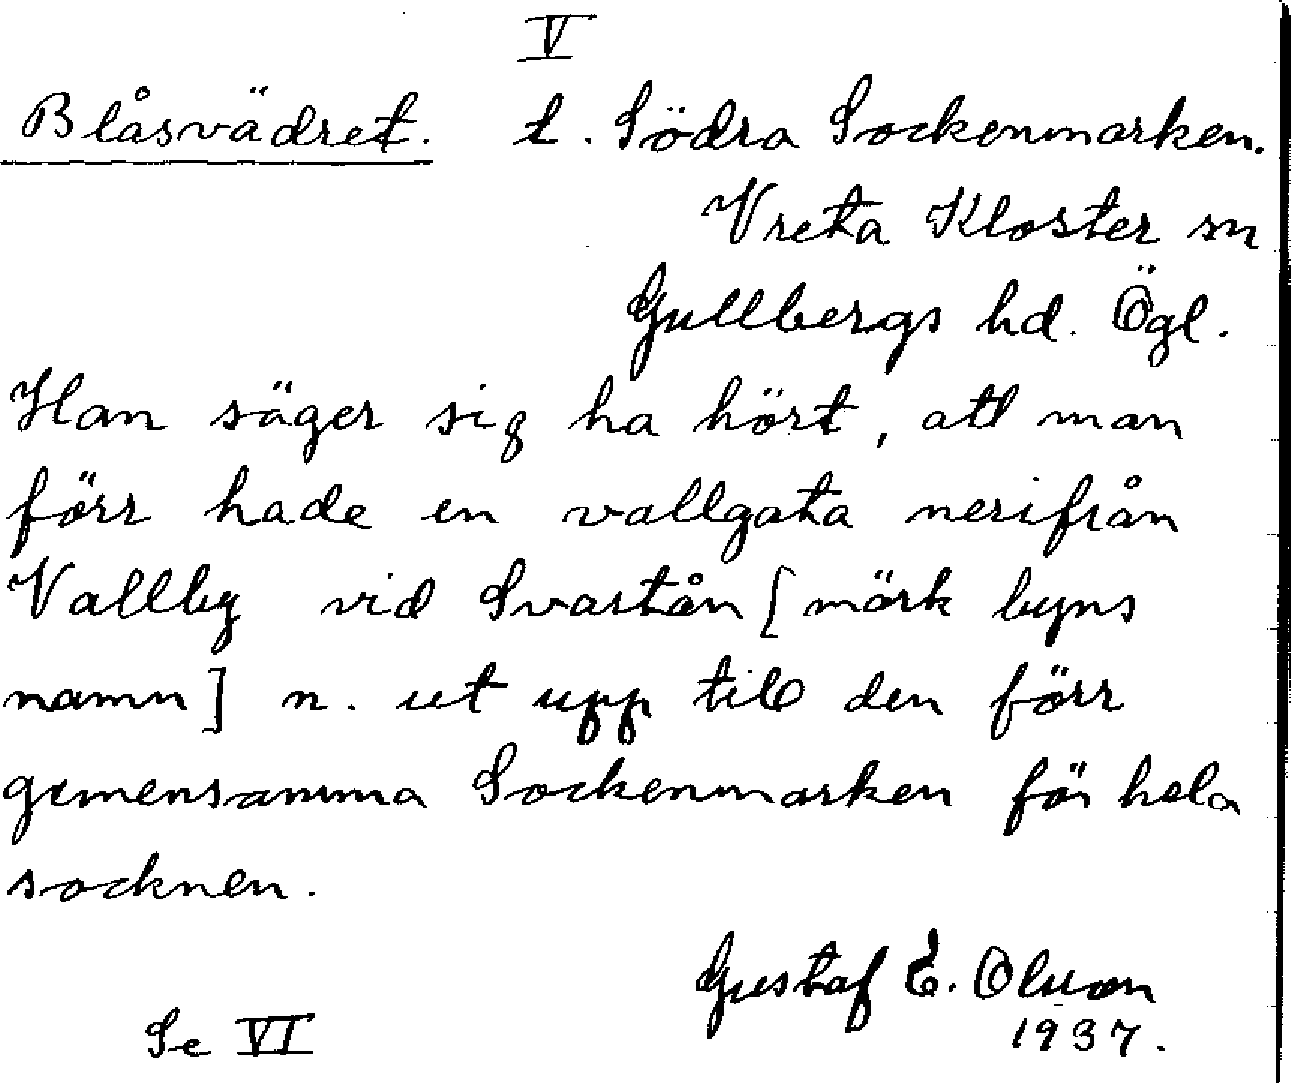 V
Blåsvädret. t. Södra Sockenmarken.
Vreta Kloster sn
Gullbergs hd. Ögl.
Han säger sig ha hört, att man
förr hade en vallgata nerifrån
Vallby vid Svartån [märk byns
namn] n. ut upp till den förr
gemensamma Sockenmarken för hela
socknen.
Gustaf E. Olsson
1937.
Se VI